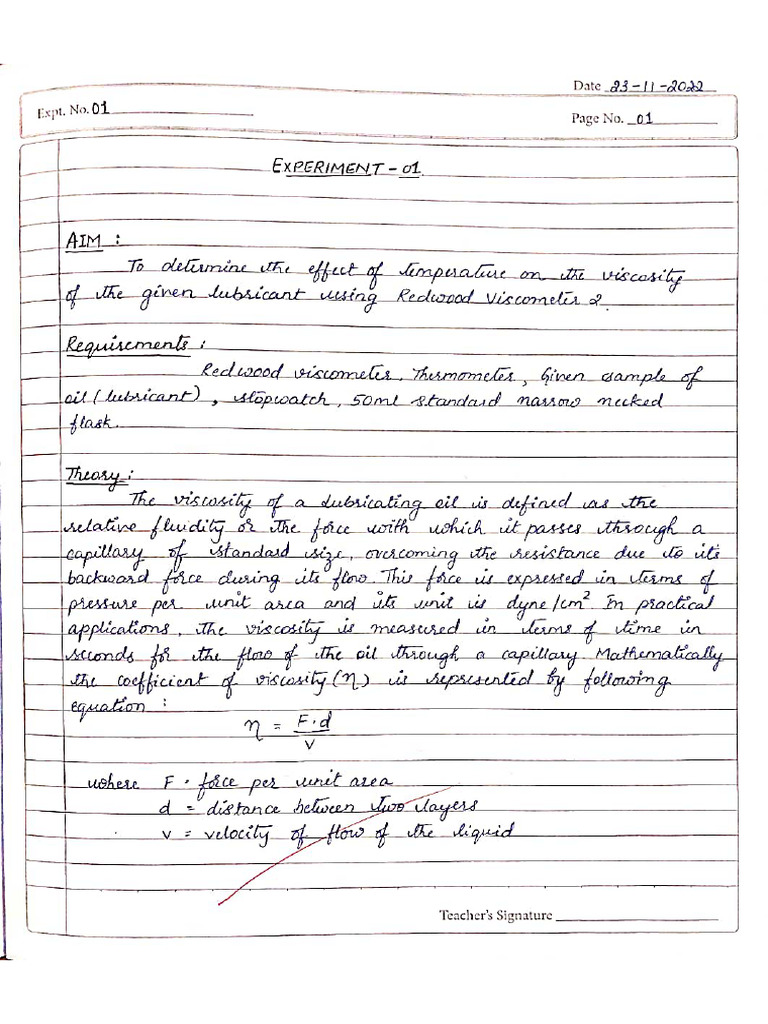 Date 23-11-2022
Expt. No. 01
Page No. 01
EXPERIMENT - 01.
AIM :
To determine the effect of temperature on the viscosity
of the given lubricant using Redwood Viscometer 2.
Requirements :
Redwood viscometer, Thermometer, Given sample of
oil (lubricant), stopwatch, 50ml standard narrow necked
flask.
Theory :
The viscosity of a lubricating oil is defined as the
relative fluidity or the force with which it passes through a
capillary of standard size, overcoming the resistance due to its
backward force during its flow. This force is expressed in terms of
pressure per unit area and its unit is dyne/cm². In practical
applications, the viscosity is measured in terms of time in
seconds for the flow of the oil through a capillary. Mathematically
the coefficient of viscosity (η) is represented by following
equation :
η = F·d / v
where F = force per unit area
d = distance between two layers
v = velocity of flow of the liquid
Teacher's Signature